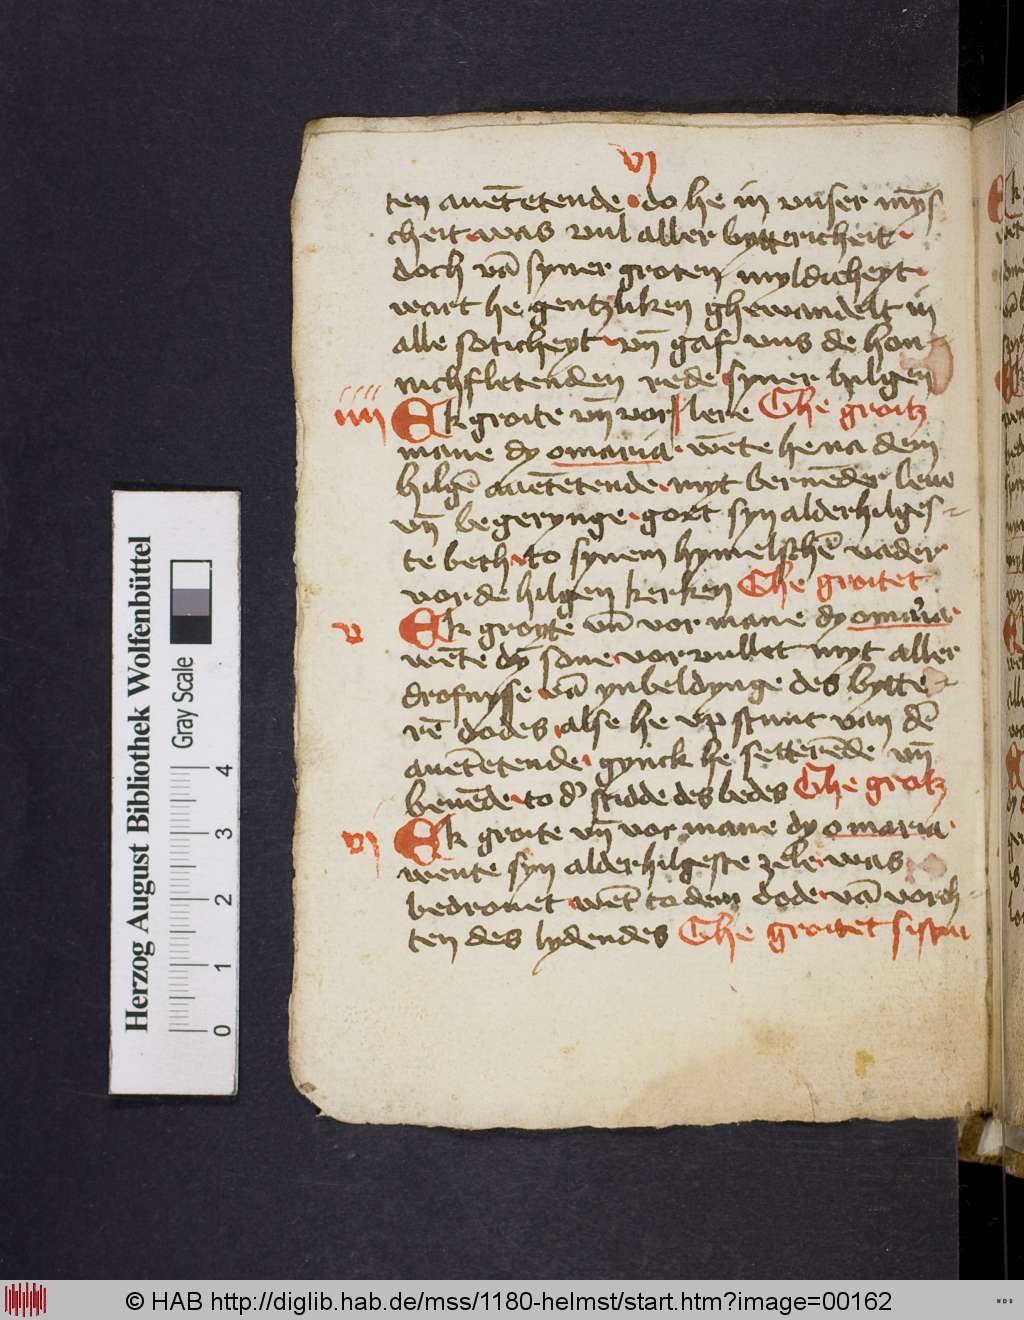 vj
ten auētetende · do he in vnser mȳs
cheit · was vul aller byttericheit ·
doch vā syner groten myldicheyt ·
wart he gentzliken ghewandelt in
alle soticheyt · vn̄ gaf vns de hon-
nichfletenden rede · syner hilgen
iiij Ek groite vn̄ vor lere Ghe groitz
mane dy o maria · wēte he na dem
hilgē auētētende · myt bernēder leue
vn̄ begerynge · gort syn alderhilges-
te beth · to synem hymelschē vader
vor de hilgen kerken Ghe groitet
v Ek groyte vn̄ vor mane dy o maria ·
wēte dȳ sone · vorvullet myt aller
drofnysse · vā ynbeldynge des bytte-
rē dodes · alse he vp stunt van dē
auētetende · gynck he setterēde vn̄
beuēde · to d' stidde des bedes Ghe grotz
vj Ek groite vn̄ vor mane dy o maria ·
wente syn alderhilgeste zele · was
bedrouet · wēt to dem dode · vā vorch-
ten des lydendes Ghe groitet sistu
Herzog August Bibliothek Wolfenbüttel
Gray Scale
0 1 2 3 4
© HAB http://diglib.hab.de/mss/1180-helmst/start.htm?image=00162